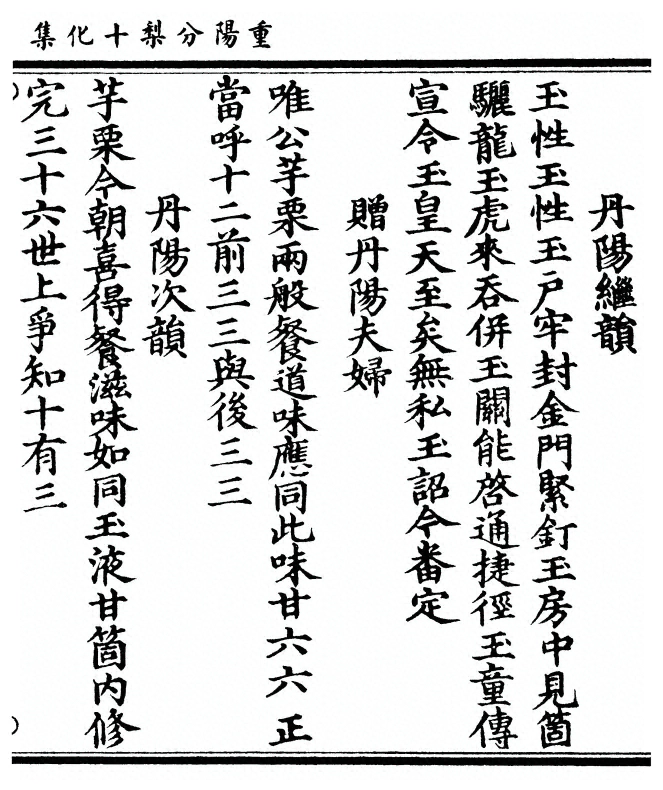 重陽分梨十化集
丹陽繼韻
玉性玉性玉戸牢封金門緊釘玉房中見箇
驪龍玉虎來吞併玉關能啓通捷徑玉童傳
宣令玉皇天至矣無私玉詔令番定
贈丹陽夫婦
唯公芋栗兩般餐道味應同此味甘六六正
當呼十二前三三與後三三
丹陽次韻
芋栗今朝喜得餐滋味如同玉液甘箇內修
完三十六世上爭知十有三